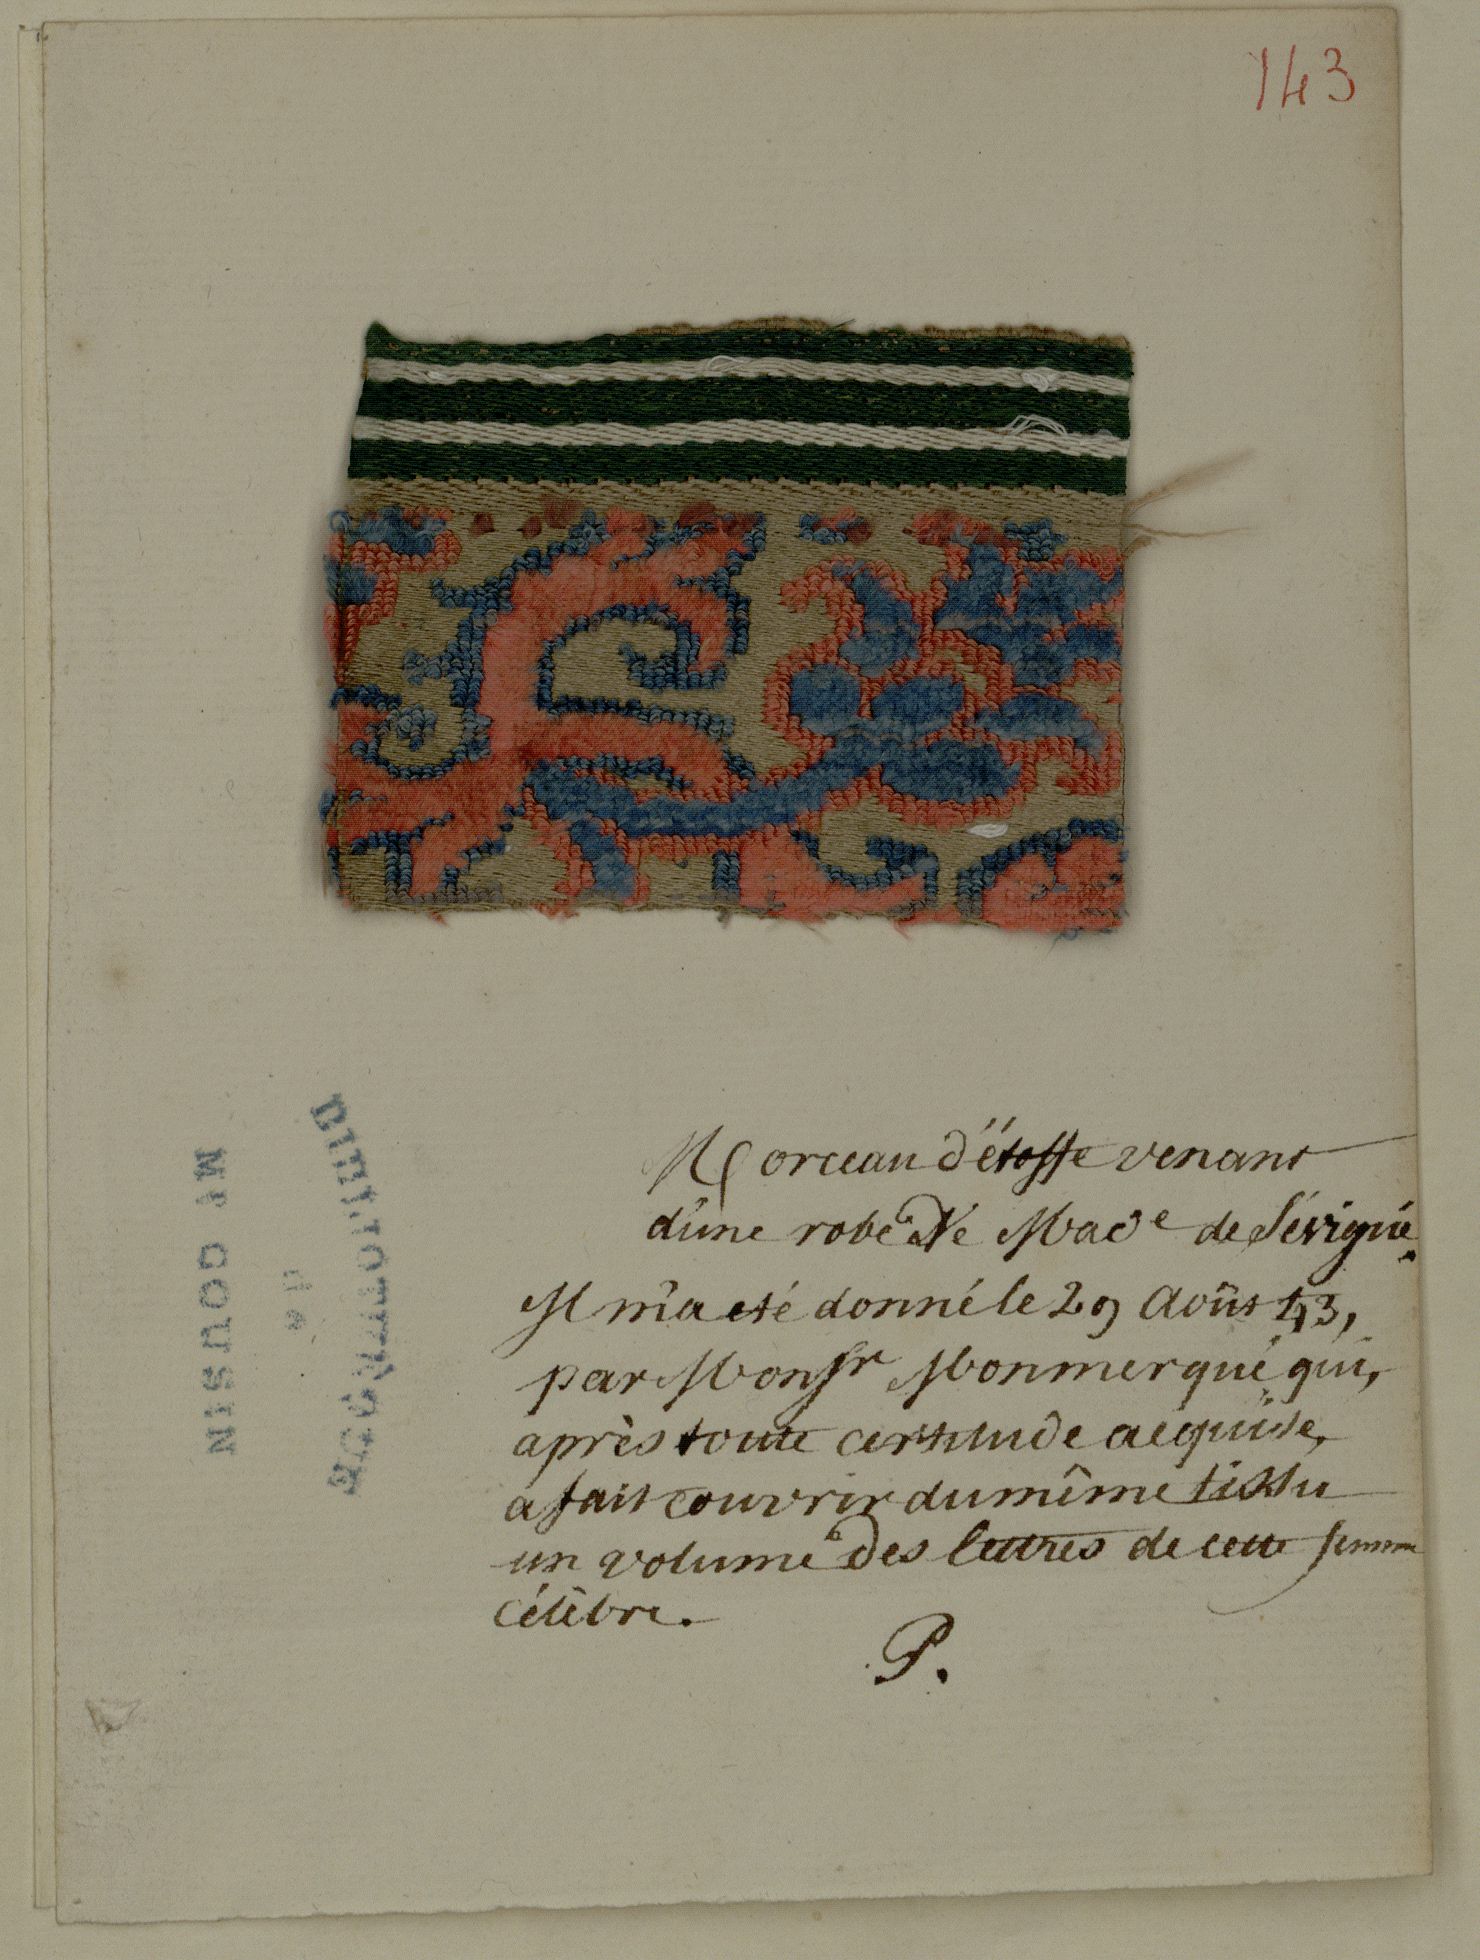 143
Morceau d'étoffe venant
d'une robe de Mad^e de Sévigné.
Il m'a été donné le 29 Août 43,
par Mons^r Monmerqué qui,
après toute certitude acquise,
a fait couvrir du même tissu
un volume des lettres de cette femme
célèbre.
P.
BIBLIOTHÈQUE
de
Mr COUSIN